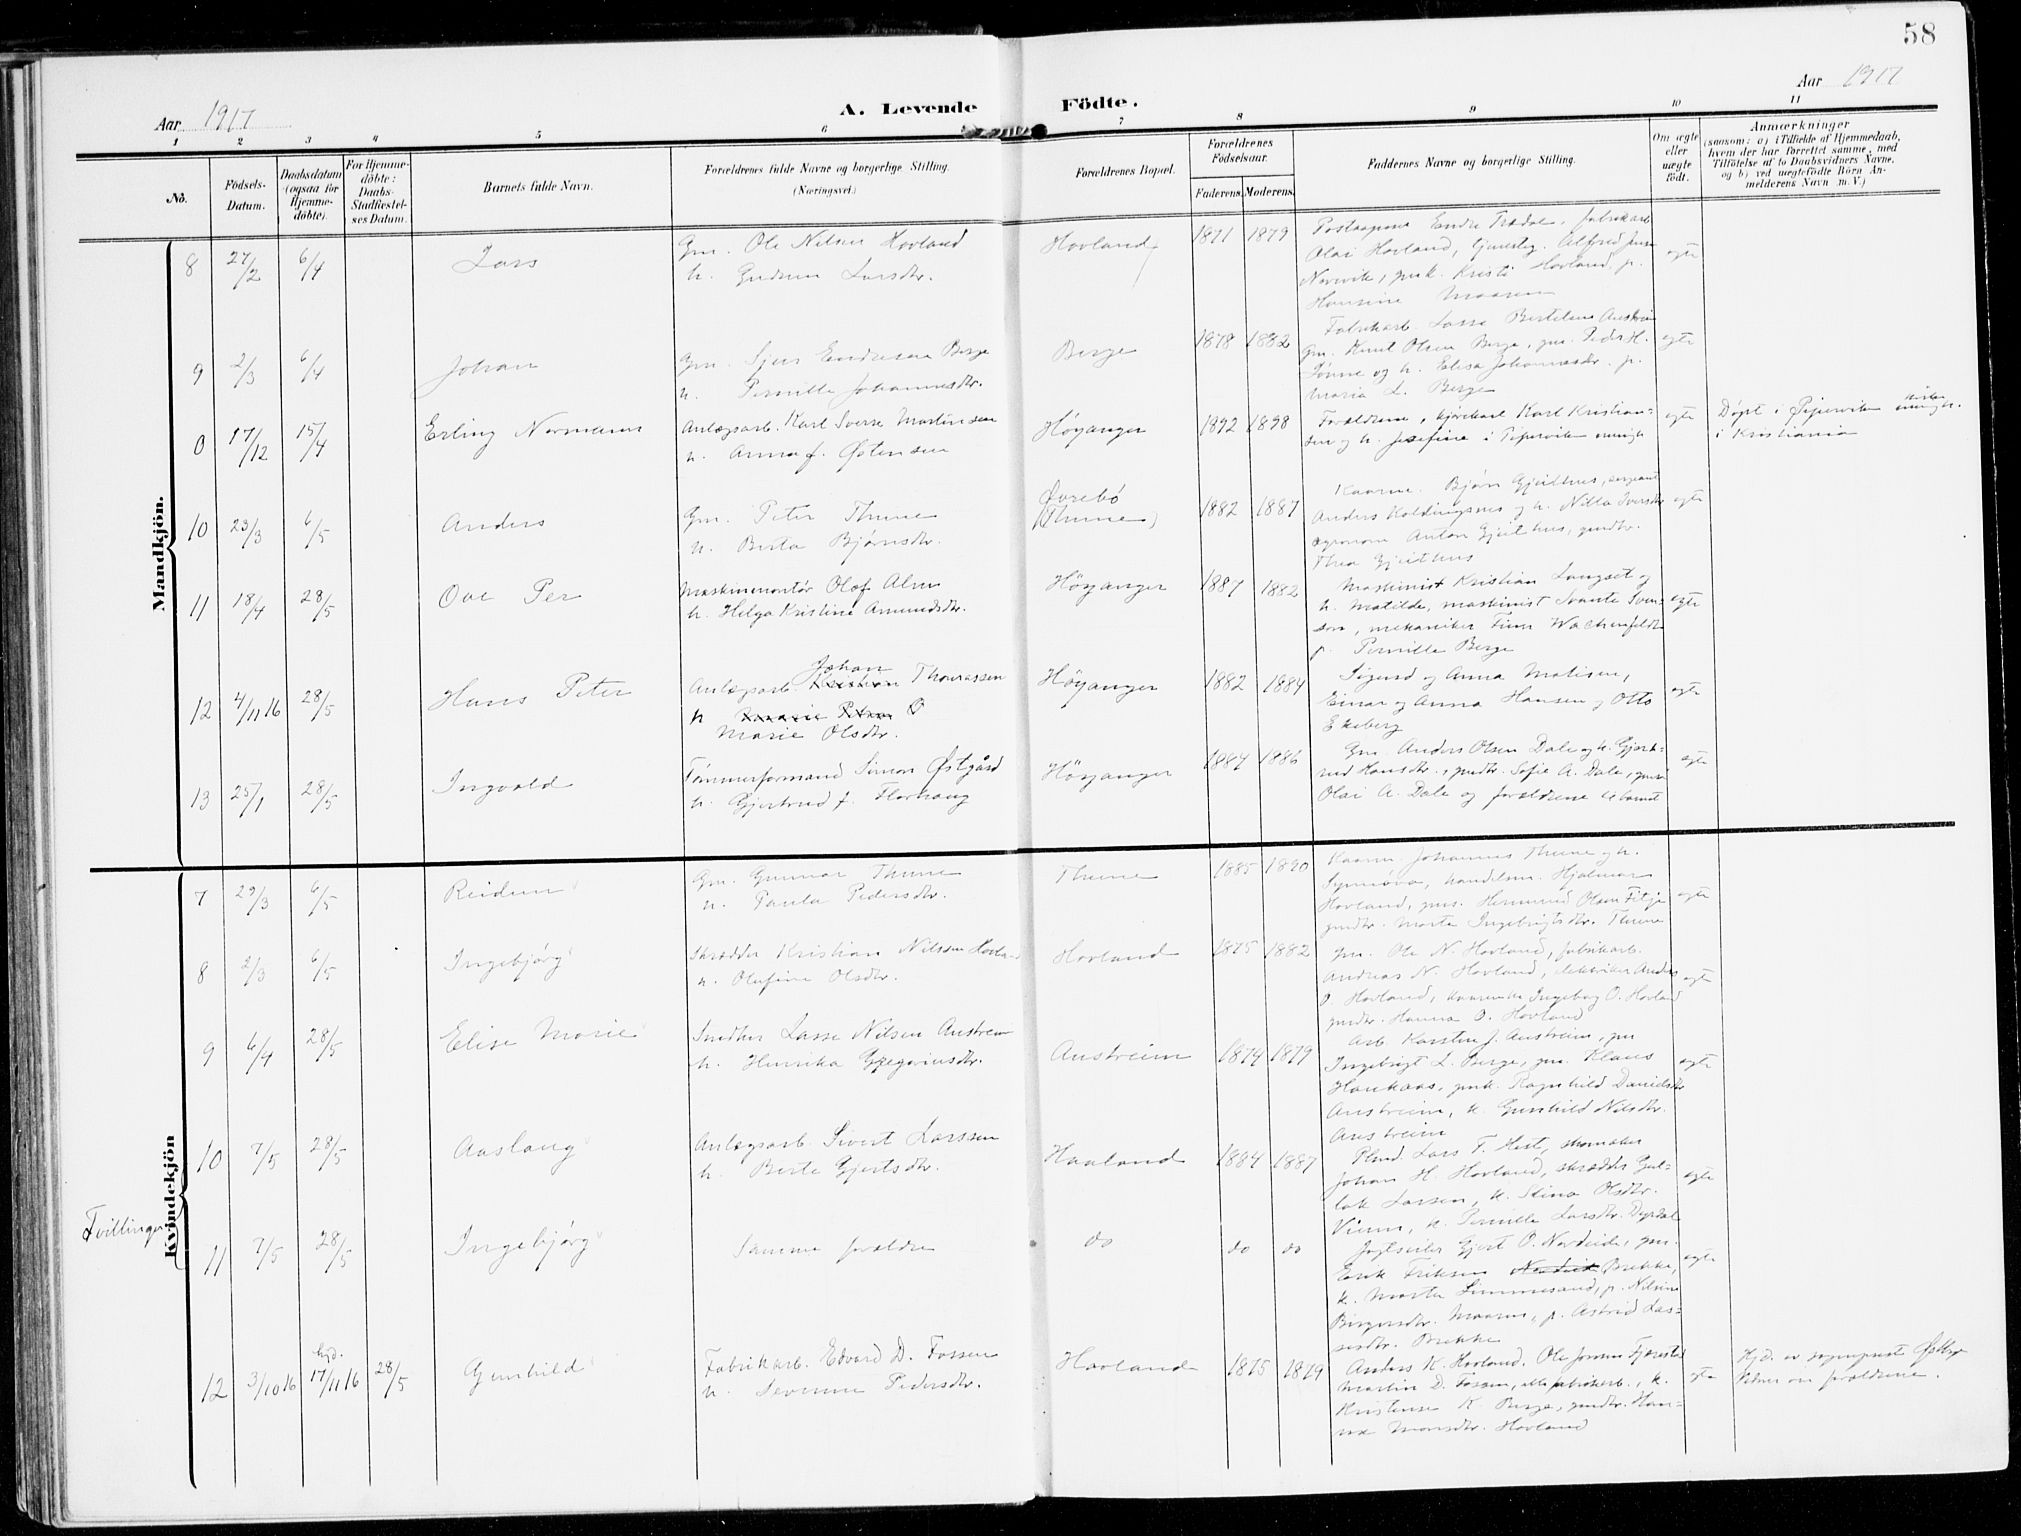 58
Aar 1917
A. Levende Födte.
Aar 1917
1 2 3 4 5 6 7 8 9 10 11
No.
Födsels-Datum.
Daabsdatum (ogsaa for Hjemme-döbte).
For Hjemme-döbte: Daabs-Stadfæstel-ses Datum.
Barnets fulde Navn.
Forældrenes fulde Navne og borgerlige Stilling.
(Næringsvei.)
Forældrenes Bopæl.
Forældrenes Födselsaar.
Faderens. Moderens.
Faddernes Navne og borgerlige Stilling.
Om ægte eller uægte födt.
Anmærkninger
(saasom: a) i Tilfælde af Hjemmedaab,
hvem der har forrettet samme, med
Tilföielse af to Daabsvidners Navne,
og b) ved uægtefödte Börn An-
melderens Navn m. V.)
Mandkjön.
8 27/2 6/4 Lars
Gm. Ole Nilsen Hovland
h. Gudrun Larsdtr.
Hovland 1871 1879
Postaapner Endre Tradal, fabrikarb.
Olai Hovland, Alfred
gmk. Kristi Hovland, p.
Hansine Maaren
ægte
9 2/3 6/4 Johan
Gm. Sjur Endresen Berge
h. Pernille Johannesdtr.
Berge 1878 1882
Fabrikarb. Lasse Bertelsen Austreim
Gm. Knut Olsen Berge, gm. Peder H.
Tønne og h. Elisa Johannesdr. p.
Maria L. Berge
ægte
0 17/12 15/4 Erling Normann
Anlægsarb. Karl Sverre Martinsen
h. Anna f. Østensen
Høyanger 1892 1898
Forældrene, kjørekarl Karl Kristian-
sen og h. Josefine i Pipervik menigh
ægte
Døpt i Pipervik menigh.
i Kristiania
10 23/3 6/5 Anders
Gm. Peter Thune
h. Berta Bjørnsdtr.
Øvrebø
(Thune) 1882 1887
Kaarm. Bjørn Gjeithus, sergeant
Anders Koldingsnes og h. Nilla Iversdtr
agronom Anton Gjeithus, gmdtr.
Thea Gjeithus
ægte
11 18/4 28/5 Ove Per
Maskinmontør Olaf Alm
h. Helga Kristine Amundsdtr.
Høyanger 1887 1882
Maskinist Kristian Langset og
h. Matilde, maskinist Svante Sven-
son, mekaniker Wachenfeldt
p. Pernille Berge
ægte
12 4/11 16 28/5 Hans Peter
Johan
Anlægsarb. Kristian Thomassen
h
Marie Olsdtr.
Høyanger 1882 1884
Sigurd og Anna Matisen,
Einar og Anna Hansen og Otto
Ekeberg
ægte
13 25/1 28/5 Ingvald
Tømmerformand Simon Østgård
h. Gjertrud f. Florhaug
Høyanger 1884 1886
Gm. Anders Olsen Dale og h. Gjert-
rud Hansdtr., gmdtr. Sofie A. Dale, gmsøn
Olai A. Dale og forældrene til barnet
ægte
Kvindekjön
7 29/3 6/5 Reidun
Gm. Gunnar Thune
h. Paula Pedersdtr.
Thune 1885 1890
Kaarm. Johannes Thune og h.
Synnøva, handelsm. Hjalmar
Hovland, gms. Hermund Olsen Filje
gmdtr. Marta Ingebrigtsdtr. Thune
ægte
8 2/3 6/5 Ingebjørg
Skrædder Kristian Nilssen Hovland
h. Olufine Olsdtr.
Hovland 1875 1882
gm. Ole N. Hovland, fabrikarb.
Andreas N. Hovland, elektriker Anders
O. Hovland, Ingeborg O. Hovland
gmdtr. Hanna O. Hovland
ægte
9 6/4 28/5 Elise Marie
Lasse Nilsen Austreim
h. Henrika Gregoriusdtr.
Austreim 1874 1879
Arb. Karsten J. Austreim, gm
Ingebrigt L. Berge, gm. Klaus
Haukaas, gmk. Ragnhild Danielsdtr
Austreim, k. Gunhild Nilsdtr.
Austreim
ægte
10 7/5 28/5 Aaslaug
Anlægsarb. Sivert Larssen
h. Berte Gjertsdtr.
Haaland 1884 1887
Plmd. Lars T. Heste, skomaker
Johan H. Hovland, skrædder Gul-
lak Larsen, k. Stina Olsdtr.
k. Pernille Larsdtr. Dyrdal
ægte
Tvillinger
11 7/5 28/5 Ingebjørg
Samme forældre
do do do
Gjert O. Nordeide, gm.
Erik Eriksen Nordeide Brekke,
k. Marta p. Nilsine
Birgersdtr. Maaren, p. Astrid Las-
sesdtr. Brekke
ægte
12 3/10 16 hjd. 17/11 16 28/5 Gunhild
Fabrikarb. Edvard D. Fossen
h. Severine Pedersdtr.
Hovland 1875 1879
Anders K. Hovland, Ole Jonsen
Martin D. Fossen, alle fabrikarb., k.
Kristense K. Berge, gmdtr. Han-
na Monsdtr. Hovland
ægte
Hjd. av sogneprest
Vidner om forældrene.